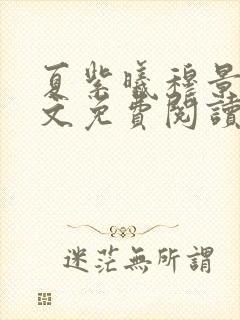 夏紫曦穆景
文免費閱讀
迷茫無所謂